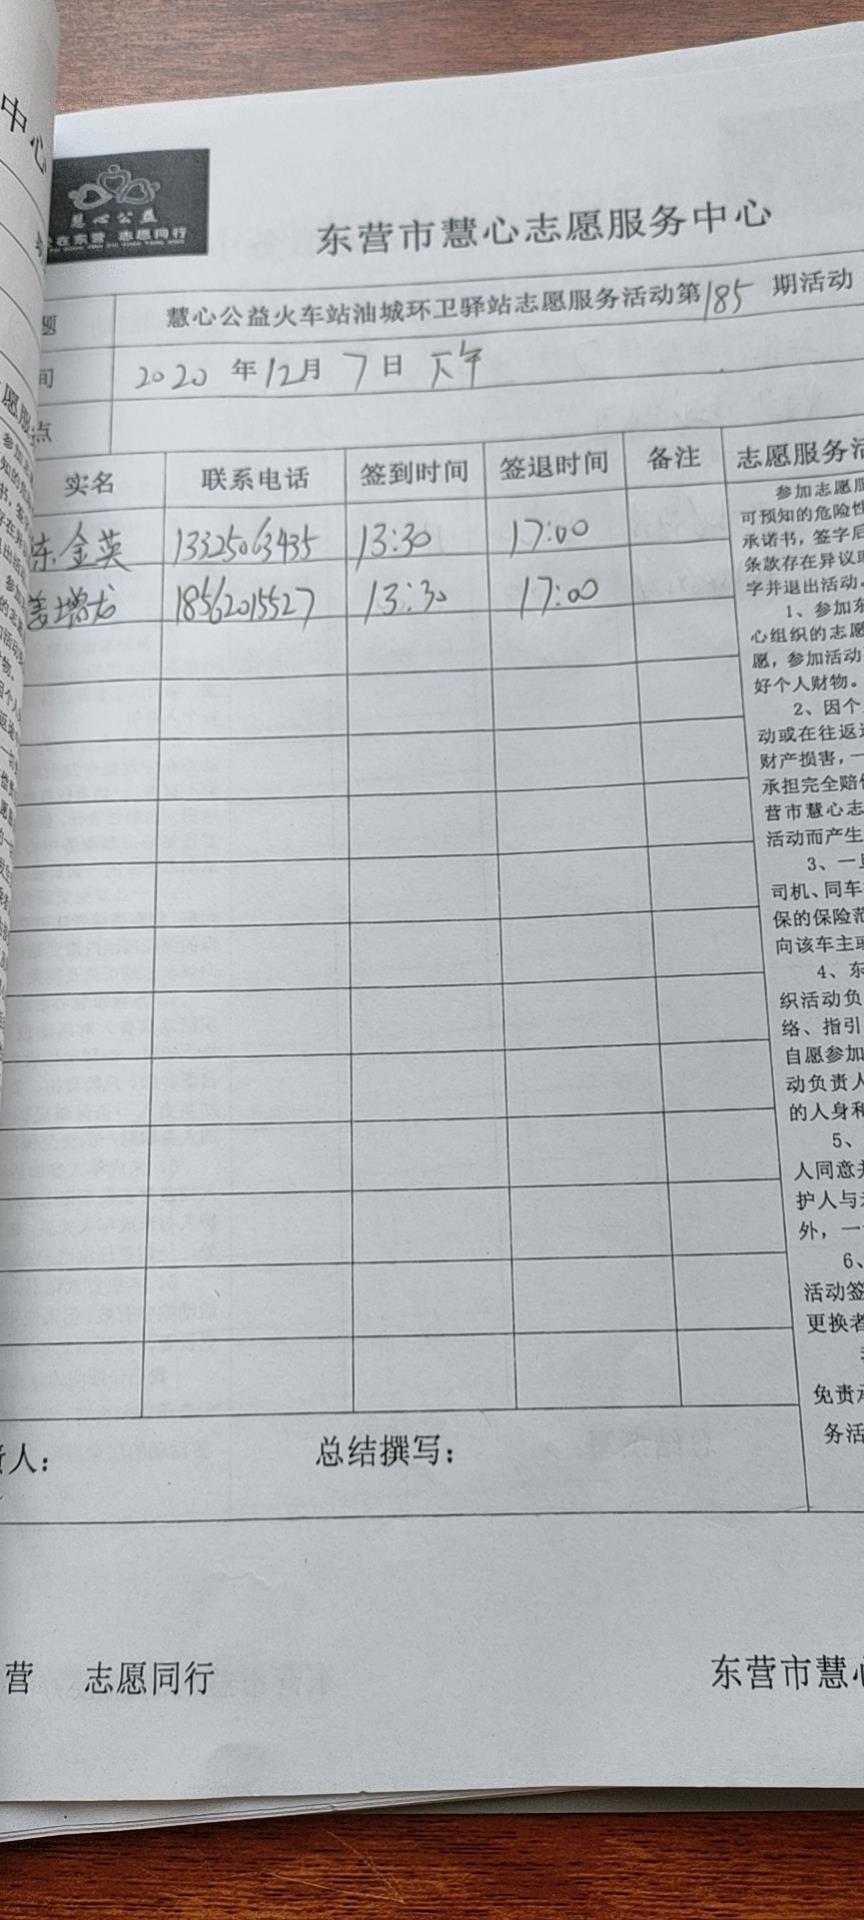 中心
慧心公益
在东营 志愿同行
东营市慧心志愿服务中心
题
慧心公益火车站油城环卫驿站志愿服务活动第185期活动
间
2020年12月7日 下午
点
实名 联系电话 签到时间 签退时间 备注 志愿服务活
金英 13325063435 13:30 17:00
姜增龙 18562015527 13:30 17:00
参加志愿服
可预知的危险性
承诺书，签字后
条款存在异议或
字并退出活动。
1、参加东
心组织的志愿
愿，参加活动
好个人财物。
2、因个
动或在往返途
财产损害，一
承担完全赔偿
营市慧心志
活动而产生
3、一旦
司机、同车
保的保险范
向该车主或
4、东
织活动负
络、指引
自愿参加
动负责人
的人身和
5、
人同意并
护人与未
外，一
6、
活动签
更换者
免责承
务活
责人： 总结撰写：
营 志愿同行 东营市慧心